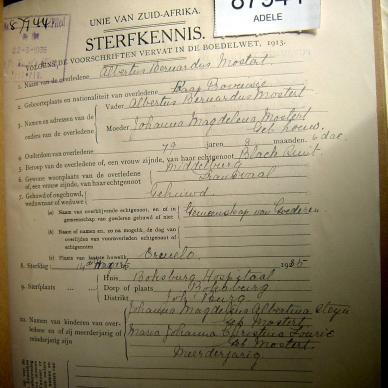 87544
ADELE
UNIE VAN ZUID-AFRIKA.
STERFKENNIS.
VOLGENS DE VOORSCHRIFTEN VERVAT IN DE BOEDELWET, 1913.
1. Naam van de overledene Albertus Bernardus Mostert
2. Geboorteplaats en nationaliteit van overledene Kaap Provincie
3. Namen en adressen van de ouders van de overledene
Vader Albertus Bernardus Mostert
Moeder Johanna Magdalena Mostert
geb Louw.
4. Ouderdom van overledene 79 jaren 8 maanden. 6 dae.
5. Beroep van de overledene of, een vrouw zijnde, van haar echtgenoot
6. Gewone woonplaats van de overledene of, een vrouw zijnde, van haar echtgenoot Middelburg
Transvaal
7. Gehuwd of ongehuwd, weduwnaar of weduwe: Gehuwd
(a) Naam van overblijvende echtgenoot, en of in gemeenschap van goederen gehuwd of niet: Gemeenskap van Goederen
(b) Naam of namen en, zo na mogelik, de dag van overlijden van vooroverleden echtgenoot of echtgenoten
(c) Plaats van laatste huwelik Ermelo
8. Sterfdag 14de
9. Sterfplaats
Huis Boksburg Hospitaal
Dorp of plaats Boksburg
Distrikt Joh'burg
10. Namen van kinderen van overledene en of zij meerderjarig of minderjarig zijn
Johanna Magdalena Albertina Steyn
geb Mostert.
Maria Johanna Christina Lourie
geb Mostert.
Meerderjarig